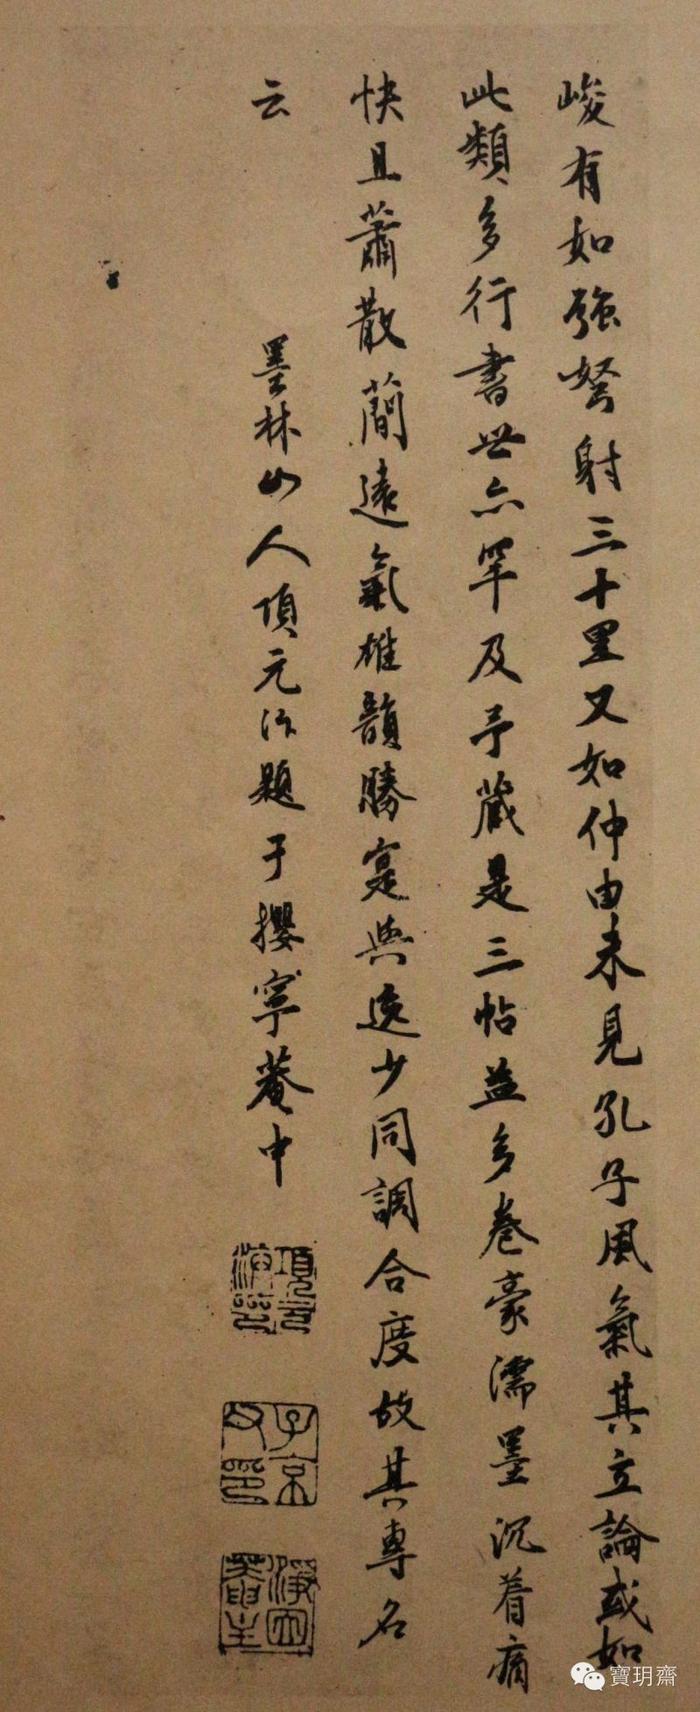 峻有如強弩射三十里又如仲由未見孔子風氣其立論或如
此類多行書世亦罕及予藏是三帖益多卷豪濡墨沉着痛
快且蕭散簡遠氣雄韻勝寔與逸少同調合度故其專名
云
墨林山人項元汴題于攖寧菴中
項元汴印
子京父印
淨因菴主
寶玥齋